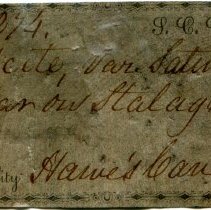 874. S. C.
cite, var. Satin
on Stalag
ity Hawe's Cav